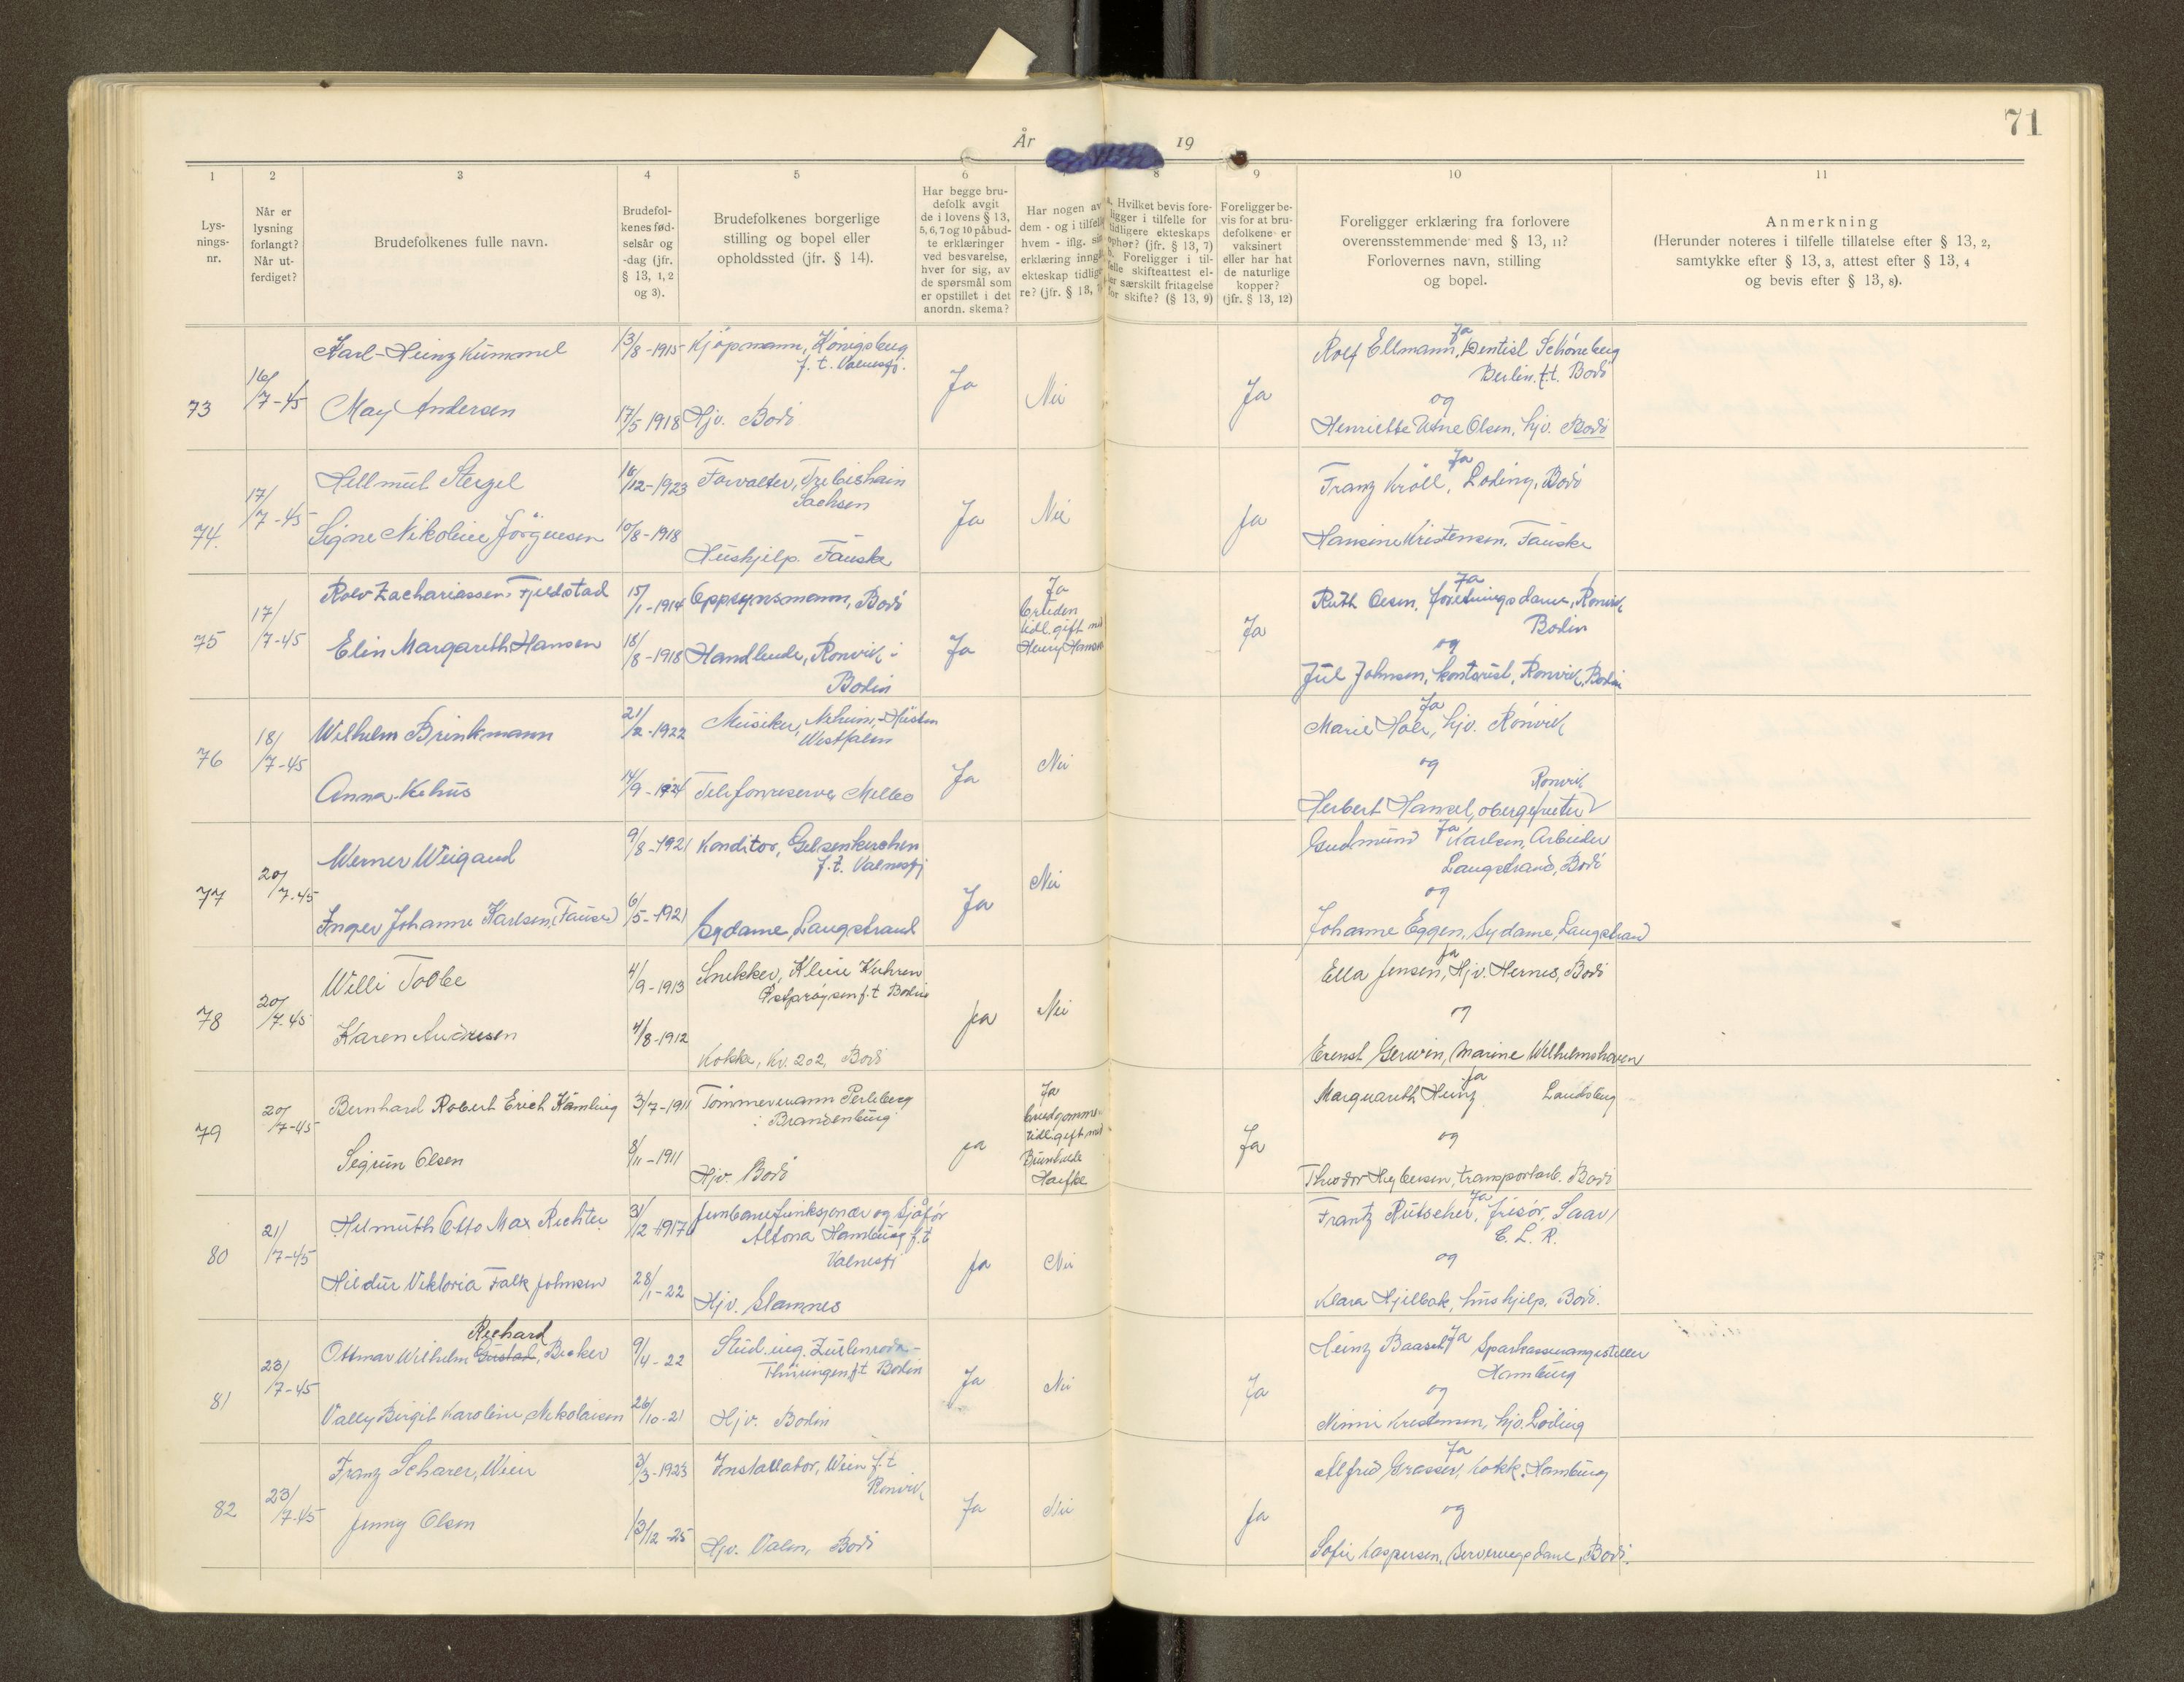 71
År 19
1 2 3 4 5 6 8 9 10 11
Lys-
nings-
nr.
Når er
lysning
forlangt?
Når ut-
ferdiget?
Brudefolkenes fulle navn.
Brudefol-
kenes fød-
selsår og
-dag (jfr.
§ 13, 1, 2
og 3).
Brudefolkenes borgerlige
stilling og bopel eller
opholdssted (jfr. § 14).
Har begge bru-
defolk avgit
de i lovens § 13,
5, 6, 7 og 10 påbud-
te erklæringer
ved besvarelse,
hver for sig, av
de spørsmål som
er opstillet i det
anordn. skema?
Har nogen av
dem - og i tilfelle
hvem - iflg. sin
erklæring inngåt
ekteskap tidlige-
re? (jfr. § 13,
a. Hvilket bevis fore-
ligger i tilfelle for
tidligere ekteskaps
ophør? (jfr. § 13, 7)
b. Foreligger i til-
felle skifteattest el-
ler særskilt fritagelse
for skifte? (§ 13, 9)
Foreligger be-
vis for at bru-
defolkene er
vaksinert
eller har hat
de naturlige
kopper?
(jfr. § 13, 12)
Foreligger erklæring fra forlovere
overensstemmende med § 13, 11?
Forlovernes navn, stilling
og bopel.
Anmerkning
(Herunder noteres i tilfelle tillatelse efter § 13, 2,
samtykke efter § 13, 3, attest efter § 13, 4
og bevis efter § 13, 8).
73
16/7-45
Karl-Heinz Kümmel
May Andersen
13/8-1915
17/5-1918
Kjøpmann, Königsberg
f. t. Valnesfj.
Hjv. Bodö
Ja
Nei
Ja
Ja
Rolf Ellmann, Dentist Schöneberg
Berlin. f.t. Bodö
og
Henriette Olsen, hjv. Bodö
74.
17/7-45
Hellmut Sterzel
Signe Nikoline Jörgensen
16/12-1923
10/8-1918
Forvalter, Trebishain
Sachsen
Hushjelp. Fauske
Ja
Nei
Ja
Ja
Franz Kröll, Löding, Bodö
Hansine Kristensen, Fauske
75
17/7-45
Rolv Zachariassen Fjeldstad
Elin Margareth Hansen
15/1-1914
18/8-1918
Oppsynsmann, Bodö
Handlende, Rønvik i
Bodin
Ja
Ja
bruden
tidl. gift med
Henry Hansen
Ja
Ja
Ruth Olsen, forretningsdame, Rønvik
Bodin
og
Jul Johnsen, kontorist, Rønvik, Bodin
76
18/7-45
Wilhelm Brinkmann
Anna Kehus
21/2-1922
14/9-1924
Musiker, Neheim,-Hüsten
Westfalen
Telefonreserve Melbo
Ja
Nei
Ja
Marie Hole, hjv. Rønvik
og
Rønvik
Herbert Hansel, obergefreiter
77
20/7-45
Werner Weigand
Inger Johanne Karlsen, (Fauske)
9/8-1921
6/5-1921
Konditor, Gelsenkirchen
f. t. Valnesfj
Sydame, Langstrand
Ja
Nei
Ja
Gudmund Karlsen, Arbeider
Langstrand, Bodö
og
Johanne Eggen, Sydame, Langstrand
78
20/7-45
Willi Tobbe
Karen Andresen
4/9-1913
4/8-1912
Snekker, Klein Kuhren
Østprøysen f.t Bodin
Kokke, Kv. 202, Bodö
Ja
Nei
Ja
Ella Jensen, Hjv. Hernes, Bodö
og
Ernst Gerwin, Marine Wilhelmshaven
79
20/7-45
Bernhard Robert Erich Kämling
Sigrun Olsen
3/7-1911
8/11-1911
Tömmermann Perleberg
i Brandenburg
Hjv. Bodö
Ja
Ja
brudgommen
tidl. gift med
Brunhilde
Hafke
Ja
Ja
Margareth Heinz Landsberg
og
Theodor Hybersen, transportarb. Bodö
80
21/7-45
Helmuth Otto Max Richter
Hildur Viktoria Falk Johnsen
31/12-1917
28/1-22
Jernbanefunksjonær og Sjåför
Altona Hamburg f.t
Valnesfj
Hjv. Glamnes
Ja
Nei
Ja
Frantz Rutscher, frisör, Saar/
C. L. R.
og
Klara Hjelbak, hushjelp, Bodö.
81
23/7-45
Richard
Ottmar Wilhelm Gustad, Becker
Vally Birgit Karoline Nikolaisen
9/4-22
26/10-21
Stud. ing. Zeulenroda-
Thüringen f.t Bodin
Hjv. Bodin
Ja
Nei
Ja
Ja
Heinz Baasch, Sparkassenangesteller
Hamburg
og
Minni Kristensen, hjv. Löding
82
23/7-45
Franz Scharer, Wien
Jenny Olsen
3/3-1923
13/12-25
Installator, Wien f.t
Rønvik
Hjv. Valen, Bodö
Ja
Nei
Ja
Ja
Alfred Grasser, Kokk, Hamburg
og
Sofie Kaspersen, Serveringsdame, Bodö.